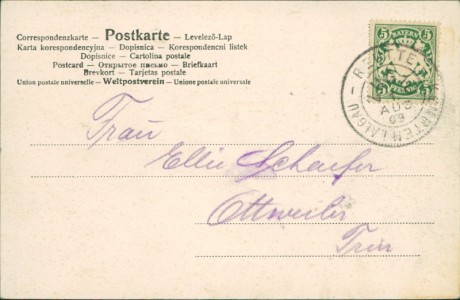 Correspondenzkarte — Postkarte — Levelező-Lap
Karta korespondencyjna — Dopisnica — Korespondencni listek
Dopisnice — Cartolina postale
Postcard — Открытое письмо — Briefkaart
Brevkort — Tarjetas postale
Union postale universelle — Weltpostverein — Unione postale universale
BAYERN
5 5
PFENNIG
AUG
09
Frau
Ellie Schaefer
Ottweiler
Trier